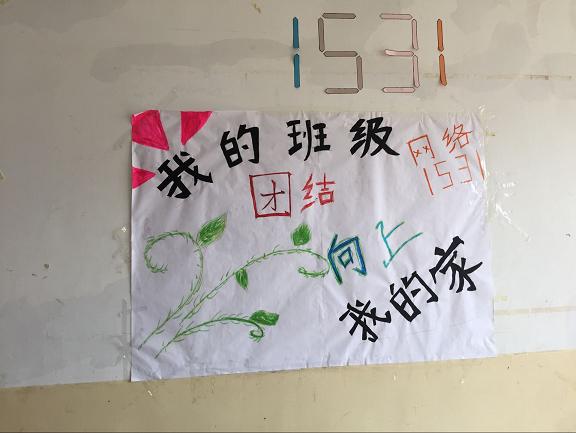 1531
我的班级
网络
1531
团结
向上
我的家